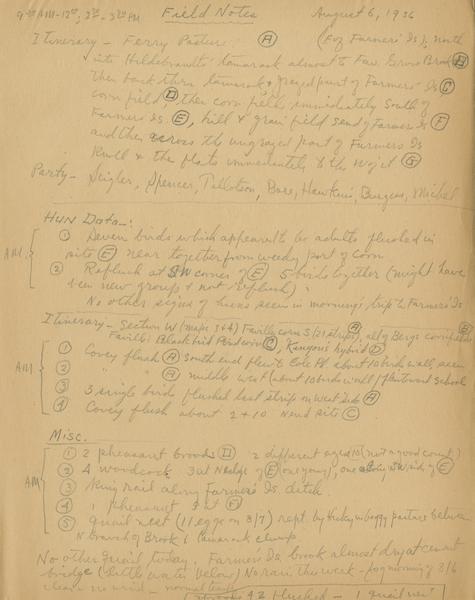 9:00 AM-12:00; 3:00-5:00 PM Field Notes August 6, 1936
Itinerary - Ferry Pasture Ⓐ (for Farmers' Is), north
into Hildebrandt's tamarack almost to Faw Grove Brook Ⓑ
then back thru tamarack & grazed part of Farmers' Is Ⓒ
corn field, Ⓓ then corn field immediately South of
Farmers Is. Ⓔ, hill & grain field S end of Farmers Is Ⓕ
and then across the ungrazed part of Farmers Is
Knoll & the flats immediately to the W of it Ⓖ
Party - Zeigler, Spencer, Tillotson, Bare, Hawkins, Burgess, Michel
HUN Data -:
AM
① Seven birds which appeared to be adults flushed in
site Ⓔ near together from weedy part of corn
② Reflush at SW corner of Ⓔ 5 birds together (might have
been new group & not reflush)
No other signs of huns seen in morning's trip to Farmers Is
Itinerary - Section W (maps 3 & 4) Faville corn S/21 strips Ⓐ, all of Bergs cornfields Ⓑ
Faville Blackbird Pond corn Ⓒ, Kenyon's hybrid Ⓓ
AM
① Covey flush Ⓐ South end about 10 birds well seen
② " " Ⓐ middle west (about 10 birds well) School
③ 3 single birds flushed last strip on West side Ⓐ
④ Covey flush about 2 + 10 N end site Ⓒ
Misc.
AM
① 2 pheasant broods Ⓓ 2 different ages 10 (not a good count)
② 4 woodcock 3 at N edge of Ⓔ (one young), one SW side of Ⓔ
③ King rail along Farmers' Is. ditch.
④ 1 pheasant at Ⓕ
⑤ Quail nest (11 eggs on 8/7) rept. by Hickey in boggy pasture between
N branch of Brook & tamarack clump.
No other quail today. Farmers' Is. brook almost dry at cement
bridge (little water below) No rain this week - fog morning of 8/6
clear - no wind - normal temp
42 flushed - 1 quail nest